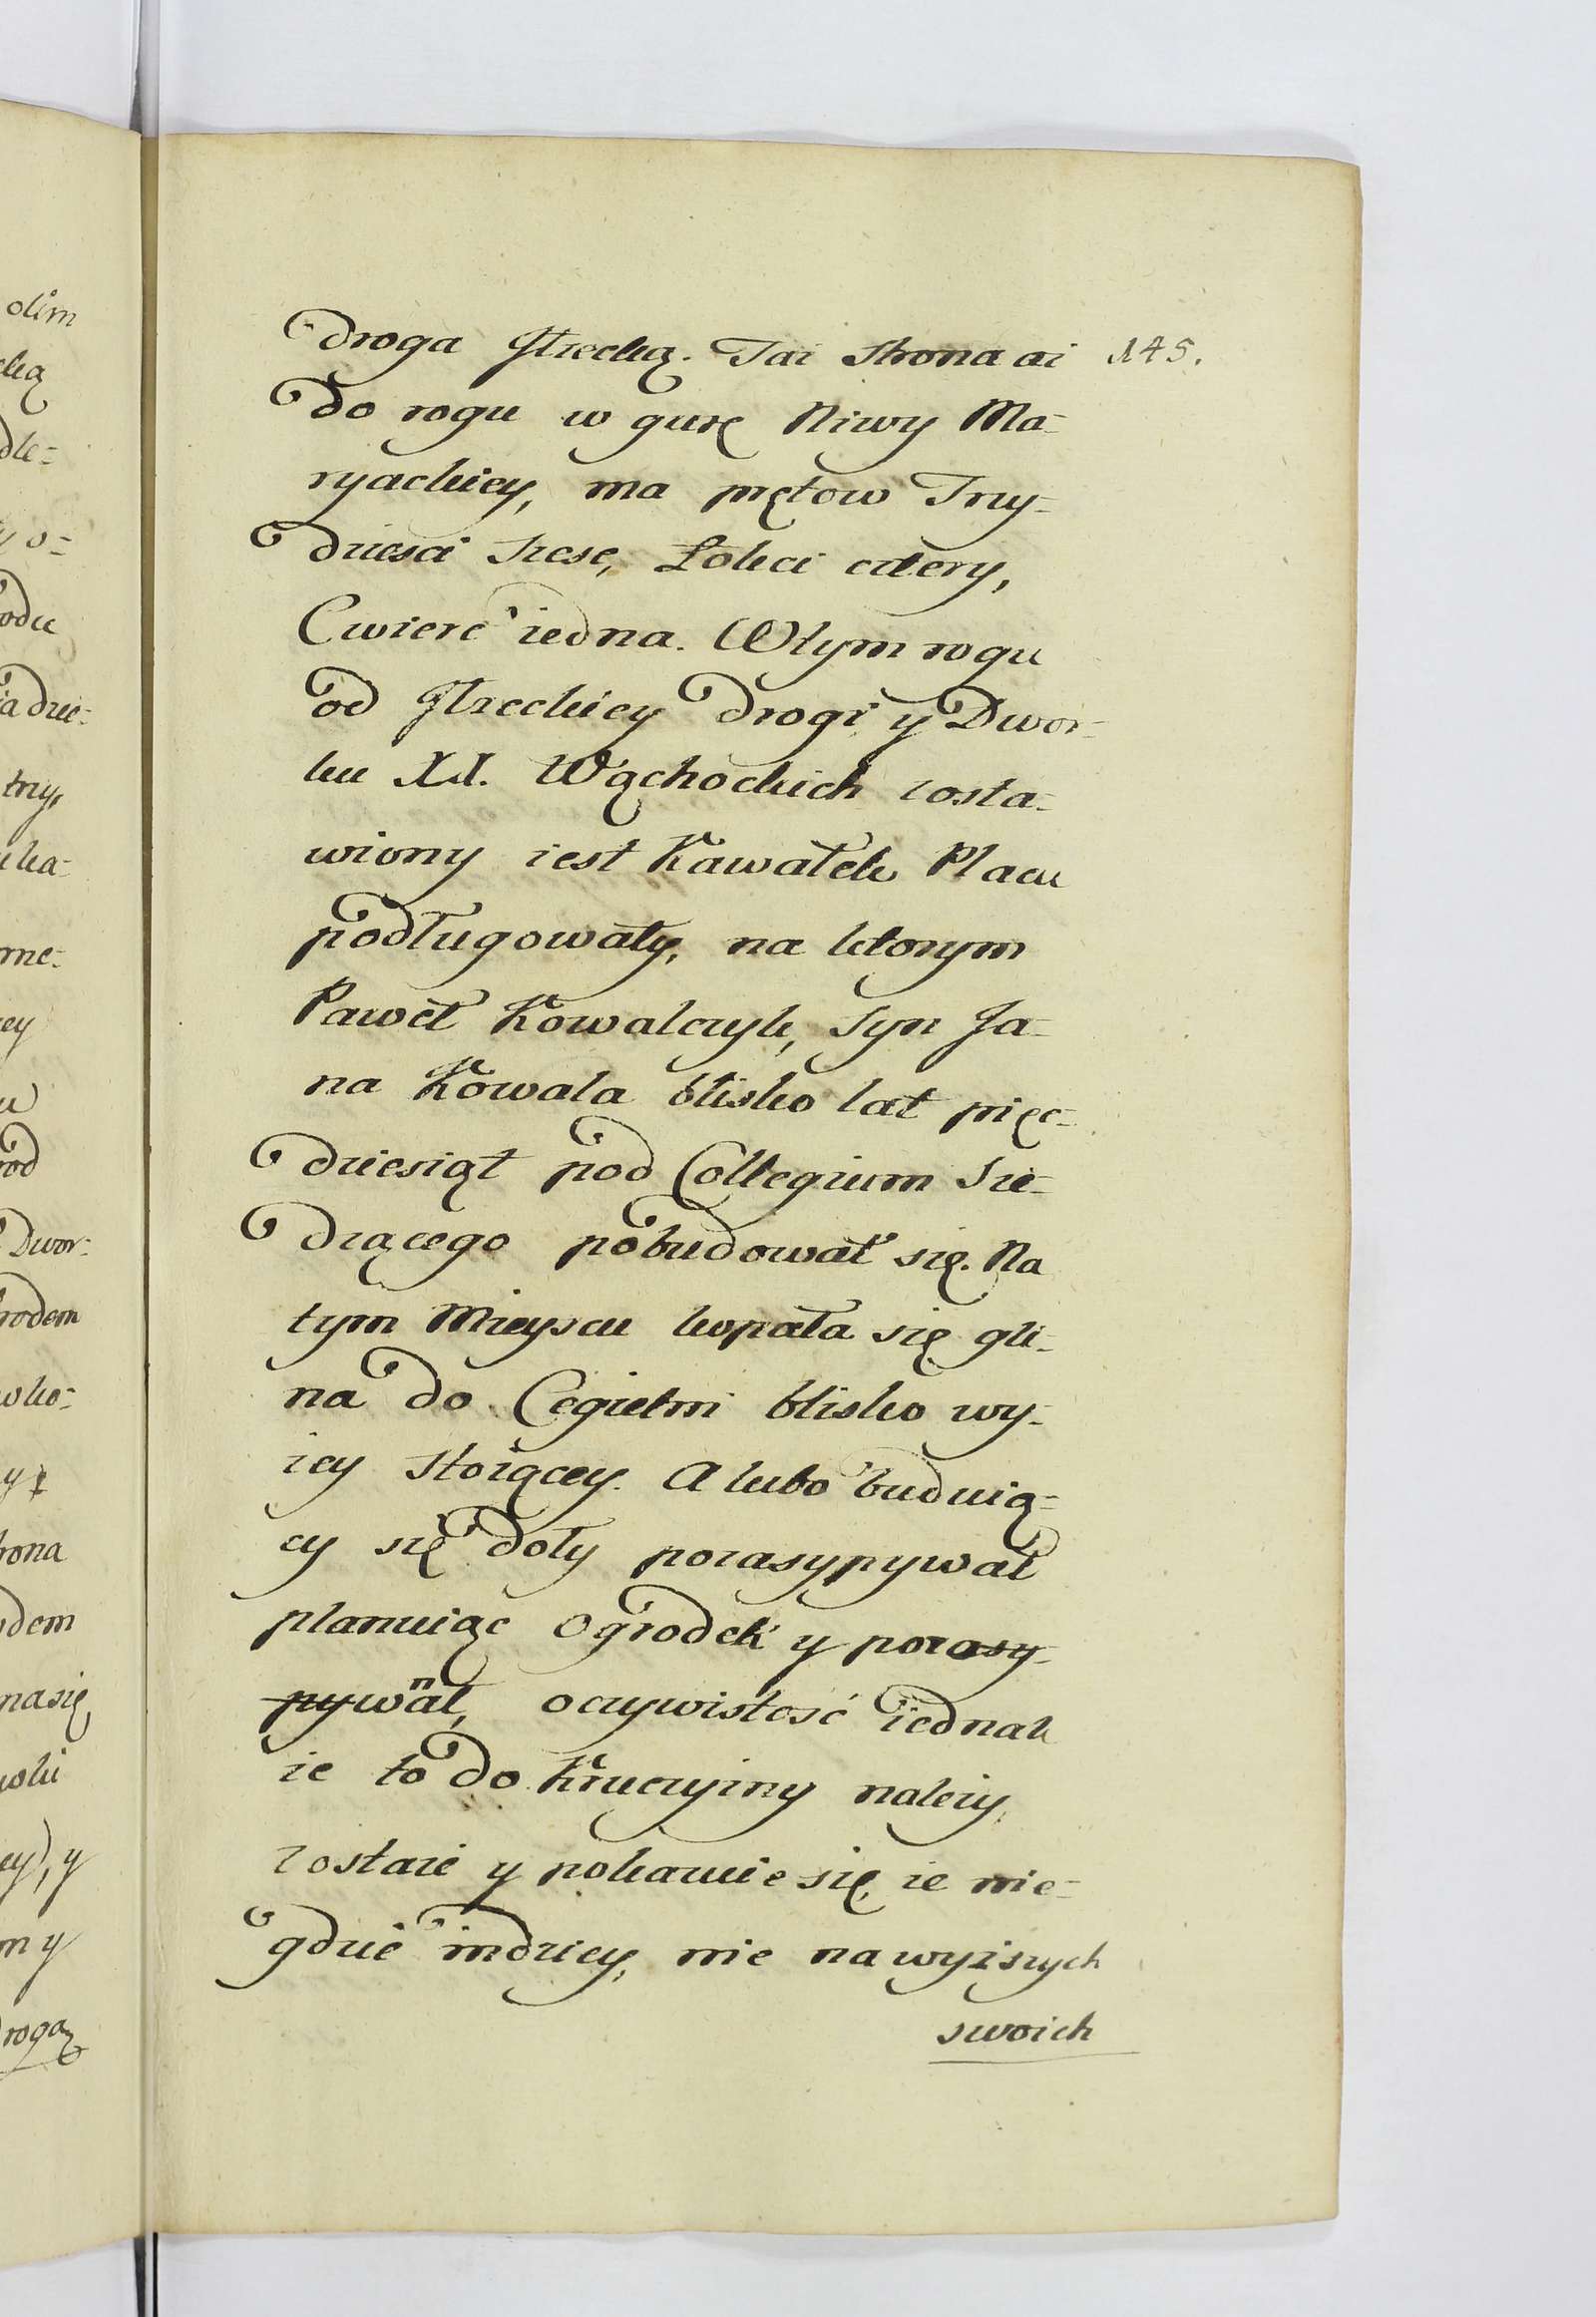 olim
cką
dle=
y o=
odu
ia dzie=
trzy,
uka=
rne=
ey
u
rod
Dwor=
rodem
wko=
y
rona
dem
na się
wski
ey), y
m y
roga
droga Iłzecką. Taż strona aż 145.
do rogu w gurę Niwy Ma=
ryackiey, ma prętow Trzy=
dziesci szesc, Łokci cztery,
Cwierć iedna. W tym rogu
od Iłzeckiey drogi y Dwor=
ku XX. Wąchockich zosta=
wiony iest Kawałek Placu
podługowaty, na ktorym
Paweł Kowalczyk, syn Ja=
na Kowala blisko lat pięc=
dziesiąt pod Collegium sie=
dzącego pobudował się. Na
tym Mieyscu kopała się gli=
na do Cegielni blisko wy=
zey stoiącey. A lubo buduią=
cy się doły pozasypywał
planuiąc Ogrodek y pozasy=
pywał, oczywistość iednak
ze to do Kruczyzny należy,
zostaie y pokazuie się, ze nie=
gdzie indziey, nie na wyższych
swoich